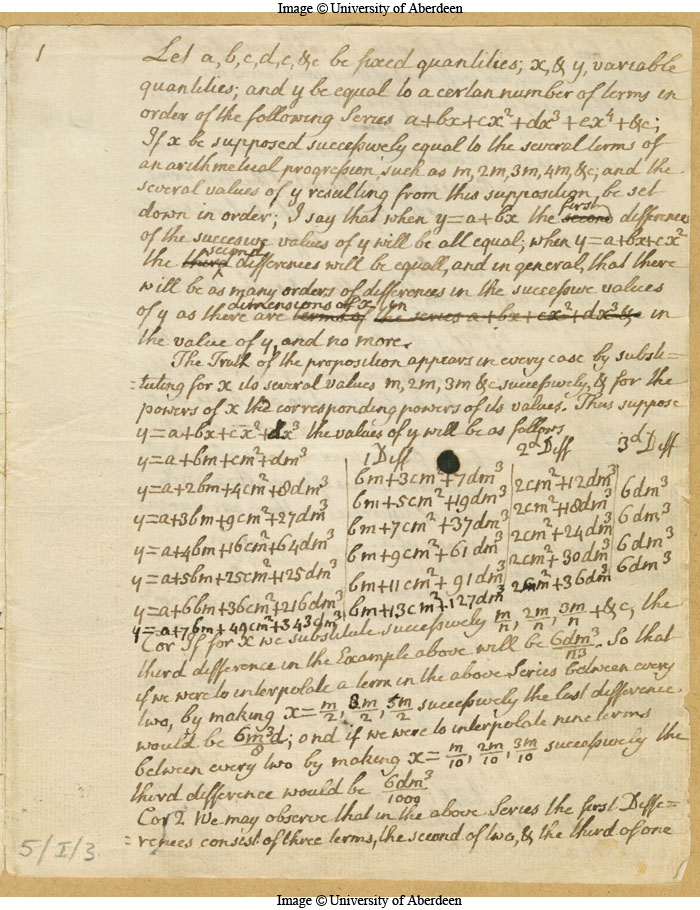 Image © University of Aberdeen
1
Let a, b, c, d, e, &c be fixed quantities; x, & y, variable
quantities; and y be equal to a certan number of terms in
order of the following Series a+bx+cx²+dx³+ex⁴+&c;
If x be supposed successively equal to the several terms of
an arithmetical progression such as m, 2m, 3m, 4m, &c; and the
several values of y resulting from this supposition, be set
down in order; I say that when y=a+bx the second first differences
of the succesive values of y will be all equal, when y=a+bx+cx²
the third second differences will be equall, and in general, that there
will be as many orders of differences in the successive values
of y as there are terms of dimensions of x in the series a+bx+cx²+dx³ & in
the value of y, and no more.
The Truth of the proposition appears in every case by substi=
=tuting for x its several values m, 2m, 3m &c successively, & for the
powers of x the corresponding powers of its values. Thus suppose
y=a+bx+cx²+dx³ the values of y will be as follows
1 Diff 2ᵈ Diff 3ᵈ Diff
y=a+bm+cm²+dm³
bm+3cm²+7dm³ 2cm²+12dm³ 6dm³
y=a+2bm+4cm²+8dm³
bm+5cm²+19dm³ 2cm²+18dm³ 6dm³
y=a+3bm+9cm²+27dm³
bm+7cm²+37dm³ 2cm²+24dm³ 6dm³
y=a+4bm+16cm²+64dm³
bm+9cm²+61dm³ 2cm²+30dm³ 6dm³
y=a+5bm+25cm²+125dm³
bm+11cm²+91dm³ 2cm²+36dm³
y=a+6bm+36cm²+216dm³
bm+13cm²+127dm³
y=a+7bm+49cm²+343dm³
Cor If for x we substitute successively m/n, 2m/n, 3m/n +&c, the
third difference in the Example above will be 6dm³/n3. So that
if we were to interpolate a term in the above Series between every
two, by making x=m/2, 3m/2, 5m/2 successively the last difference
would be 6m³d/8; and if we were to interpolate nine terms
between every two by making x=m/10, 2m/10, 3m/10 successively the
third difference would be 6dm³/1000
Cor 2 We may observe that in the above Series the first Diffe=
=rences consist of three terms, the second of two, & the third of one
5/I/3
Image © University of Aberdeen